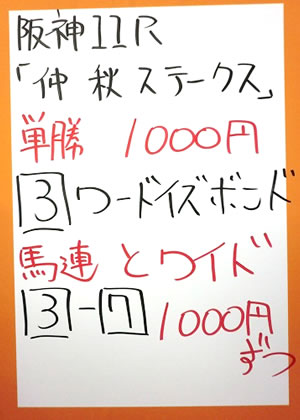 阪神11R
「仲秋ステークス」
単勝 1000円
3 ワードイズボンド
馬連とワイド
3-7 1000円
ずつ